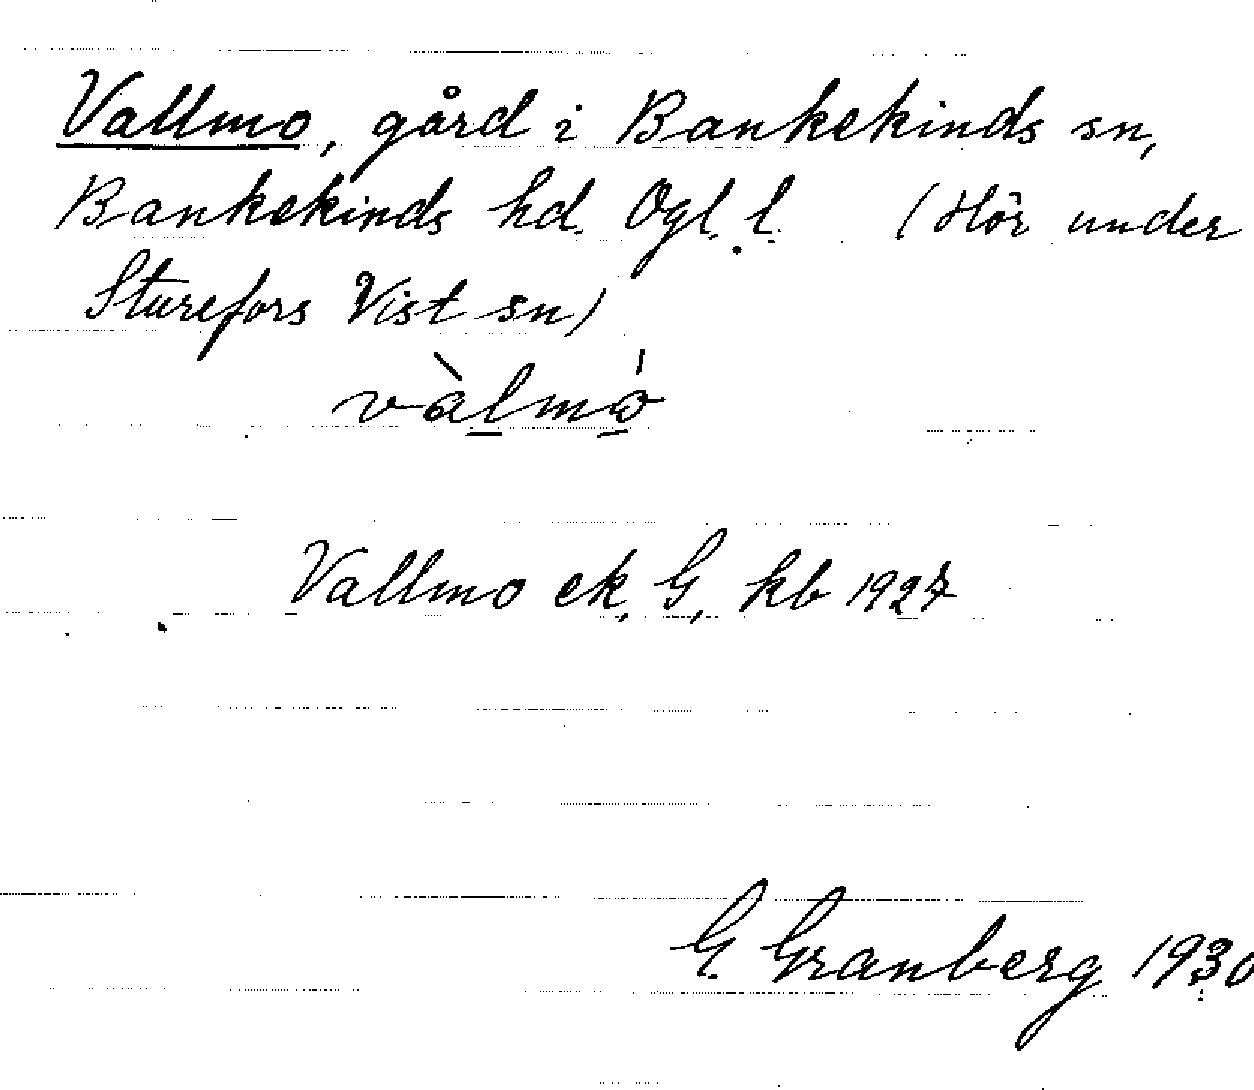 Vallmo, gård i Bankekinds sn,
Bankekinds hd. Ögl. l. (Hör under
Sturefors Vist sn)
vàl̲mó̲
Vallmo ek. G. kb 1927
G. Granberg 1930